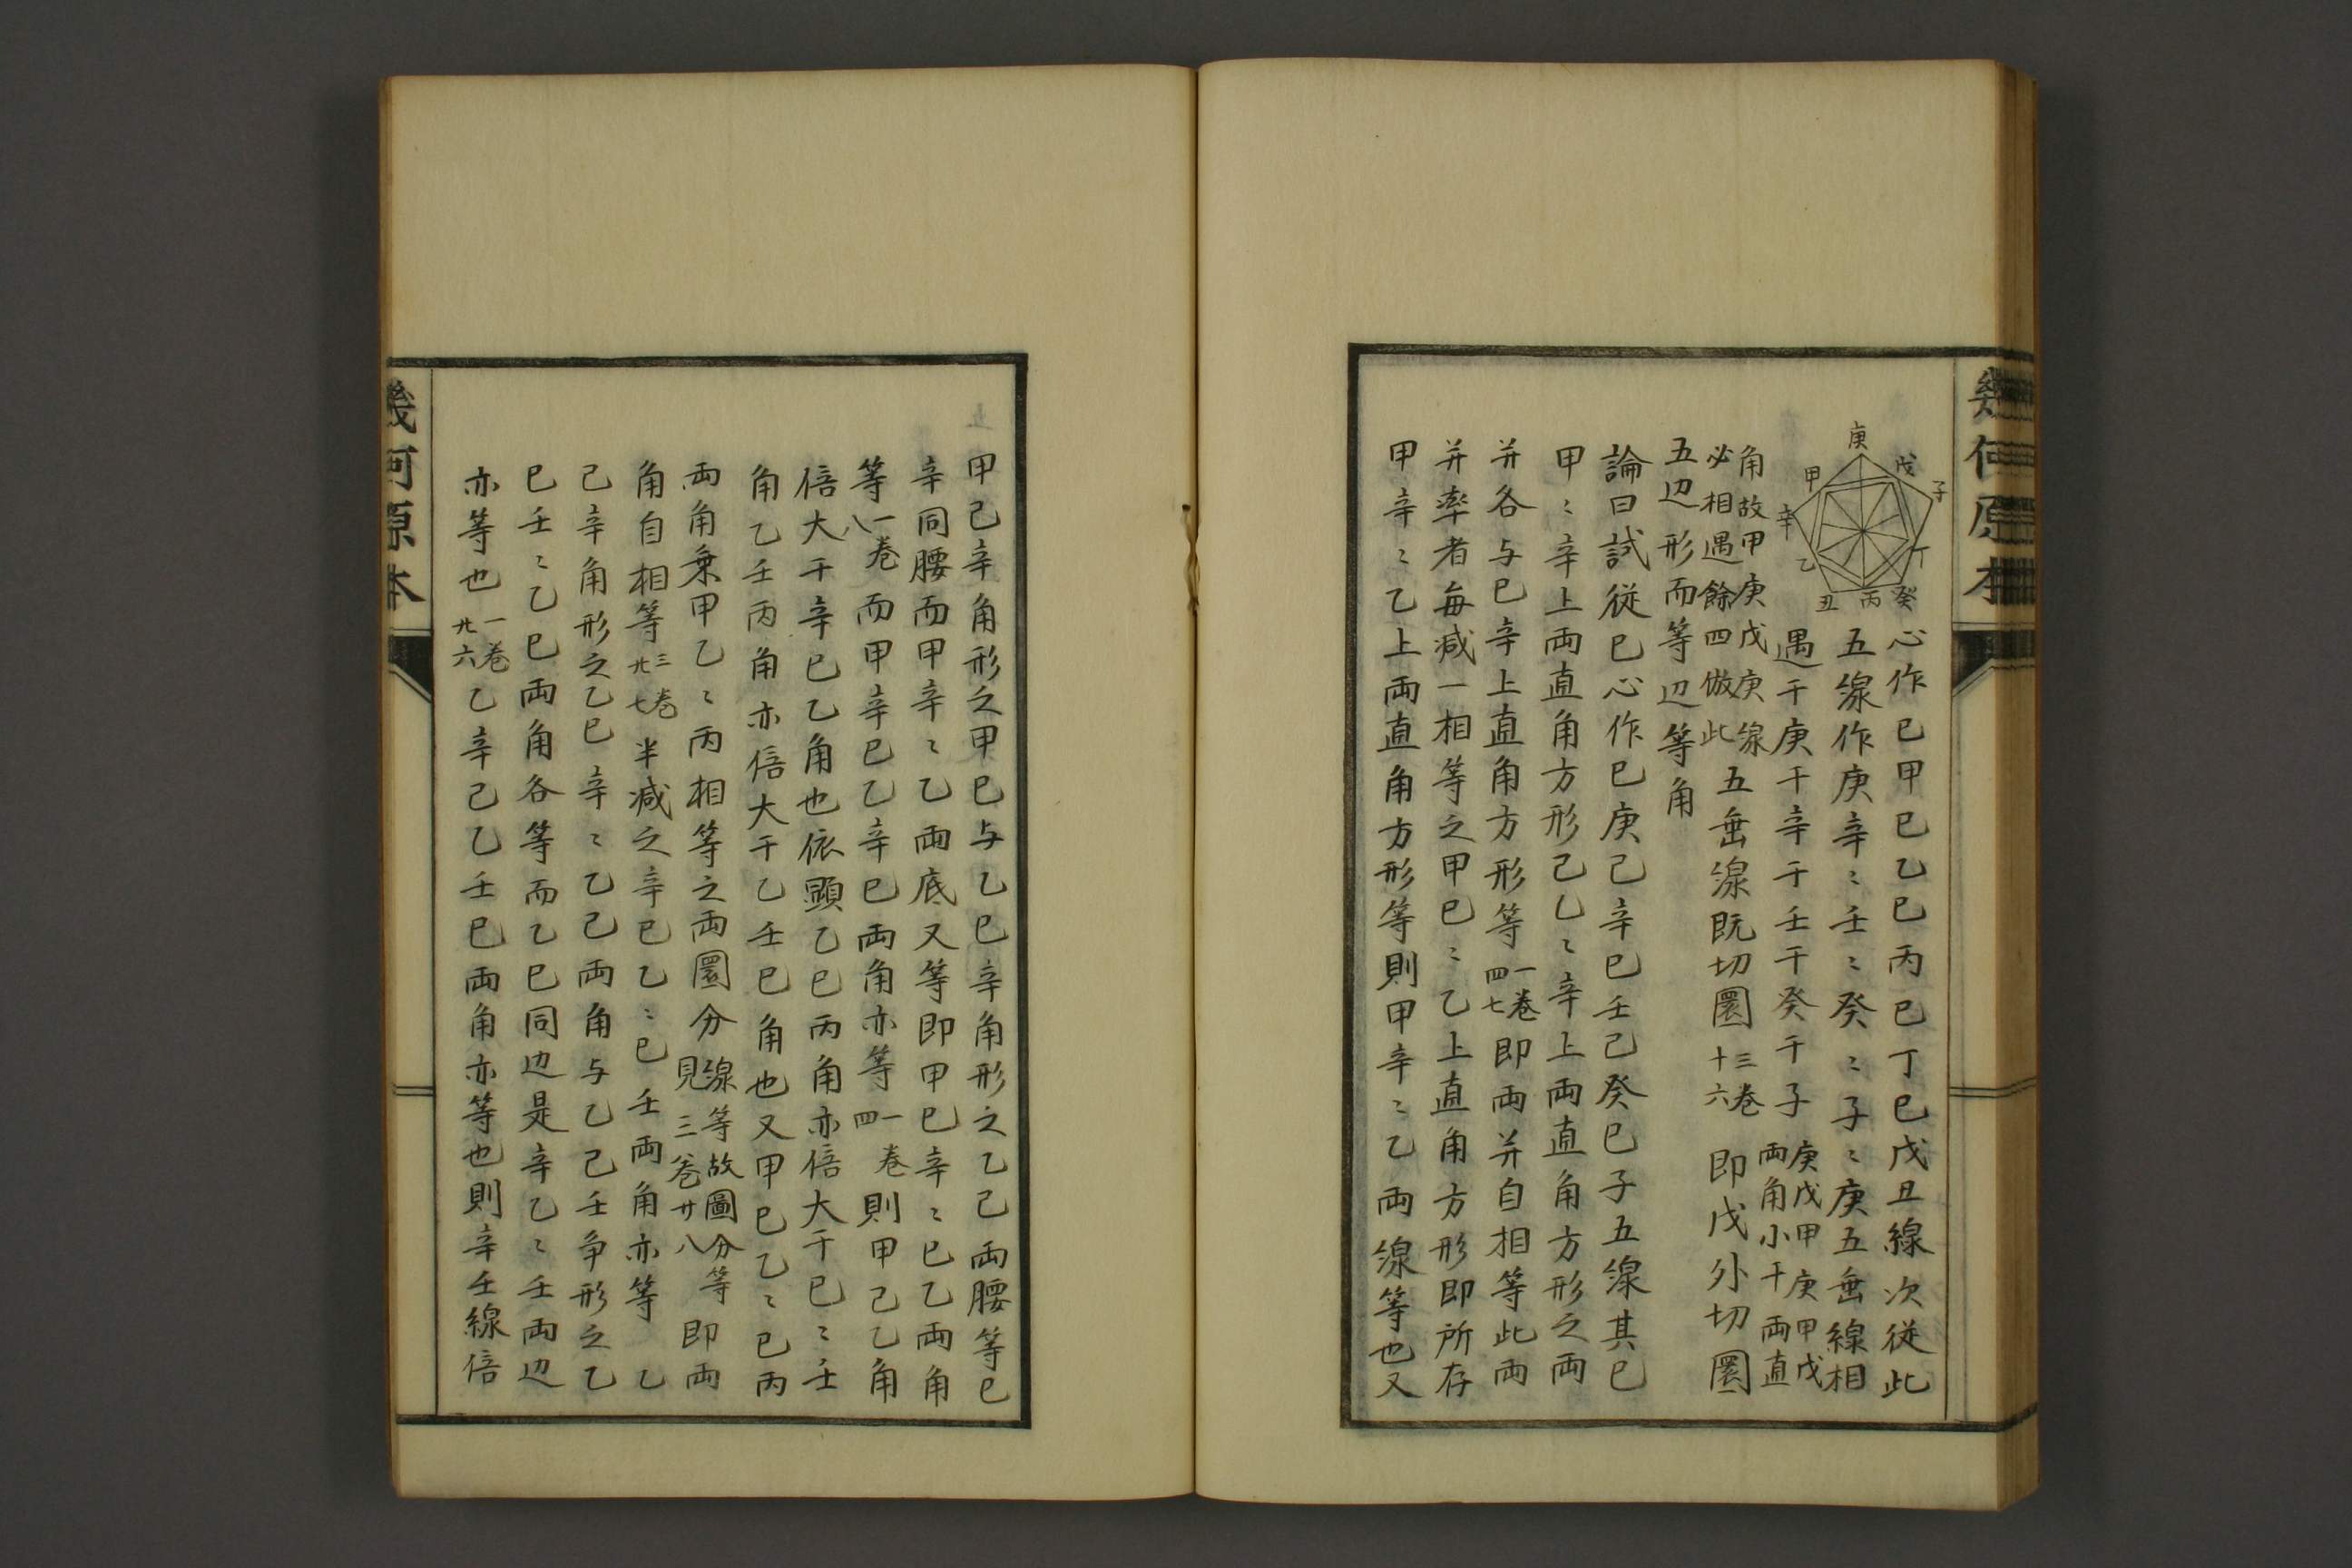 幾何原本
庚
戊
子
甲
辛
乙
丁
丑
丙
癸
心作巳甲巳乙巳丙巳丁巳戊丑線次從此
五線作庚辛〻壬〻癸〻子〻庚五垂線相
遇干庚干辛干壬干癸干子庚戊甲庚甲戊
両角小干両直
角故甲庚戊庚線
必相遇餘四倣此五垂線既切圜三卷
十六即戊外切圜
五边形而等边等角
論曰試從巳心作巳庚己辛巳壬己癸巳子五線其巳
甲〻辛上両直角方形己乙〻辛上両直角方形之両
并各与巳辛上直角方形等一卷
四七即両并自相等此両
并率者每减一相等之甲巳〻乙上直角方形即所存
甲辛〻乙上両直角方形等則甲辛〻乙両線等也又
甲己辛角形之甲巳与乙巳辛角形之乙己両腰等巳
辛同腰而甲辛〻乙両底又等即甲巳辛〻巳乙両角
等一卷
八而甲辛巳乙辛巳両角亦等一卷
四則甲己乙角
倍大干辛巳乙角也依顕乙巳丙角亦倍大干巳〻壬
角乙壬丙角亦倍大干乙壬巳角也又甲巳乙〻巳丙
両角乗甲乙〻丙相等之両圜分線等故圖分等
見三卷廿八即両
角自相等三卷
廿七半减之辛巳乙〻巳壬両角亦等乙
己辛角形之乙巳辛〻乙己両角与乙己壬争形之乙
巳壬〻乙巳両角各等而乙巳同边是辛乙〻壬両边
亦等也一卷
廿六乙辛己乙壬巳両角亦等也則辛壬線倍
幾何原本